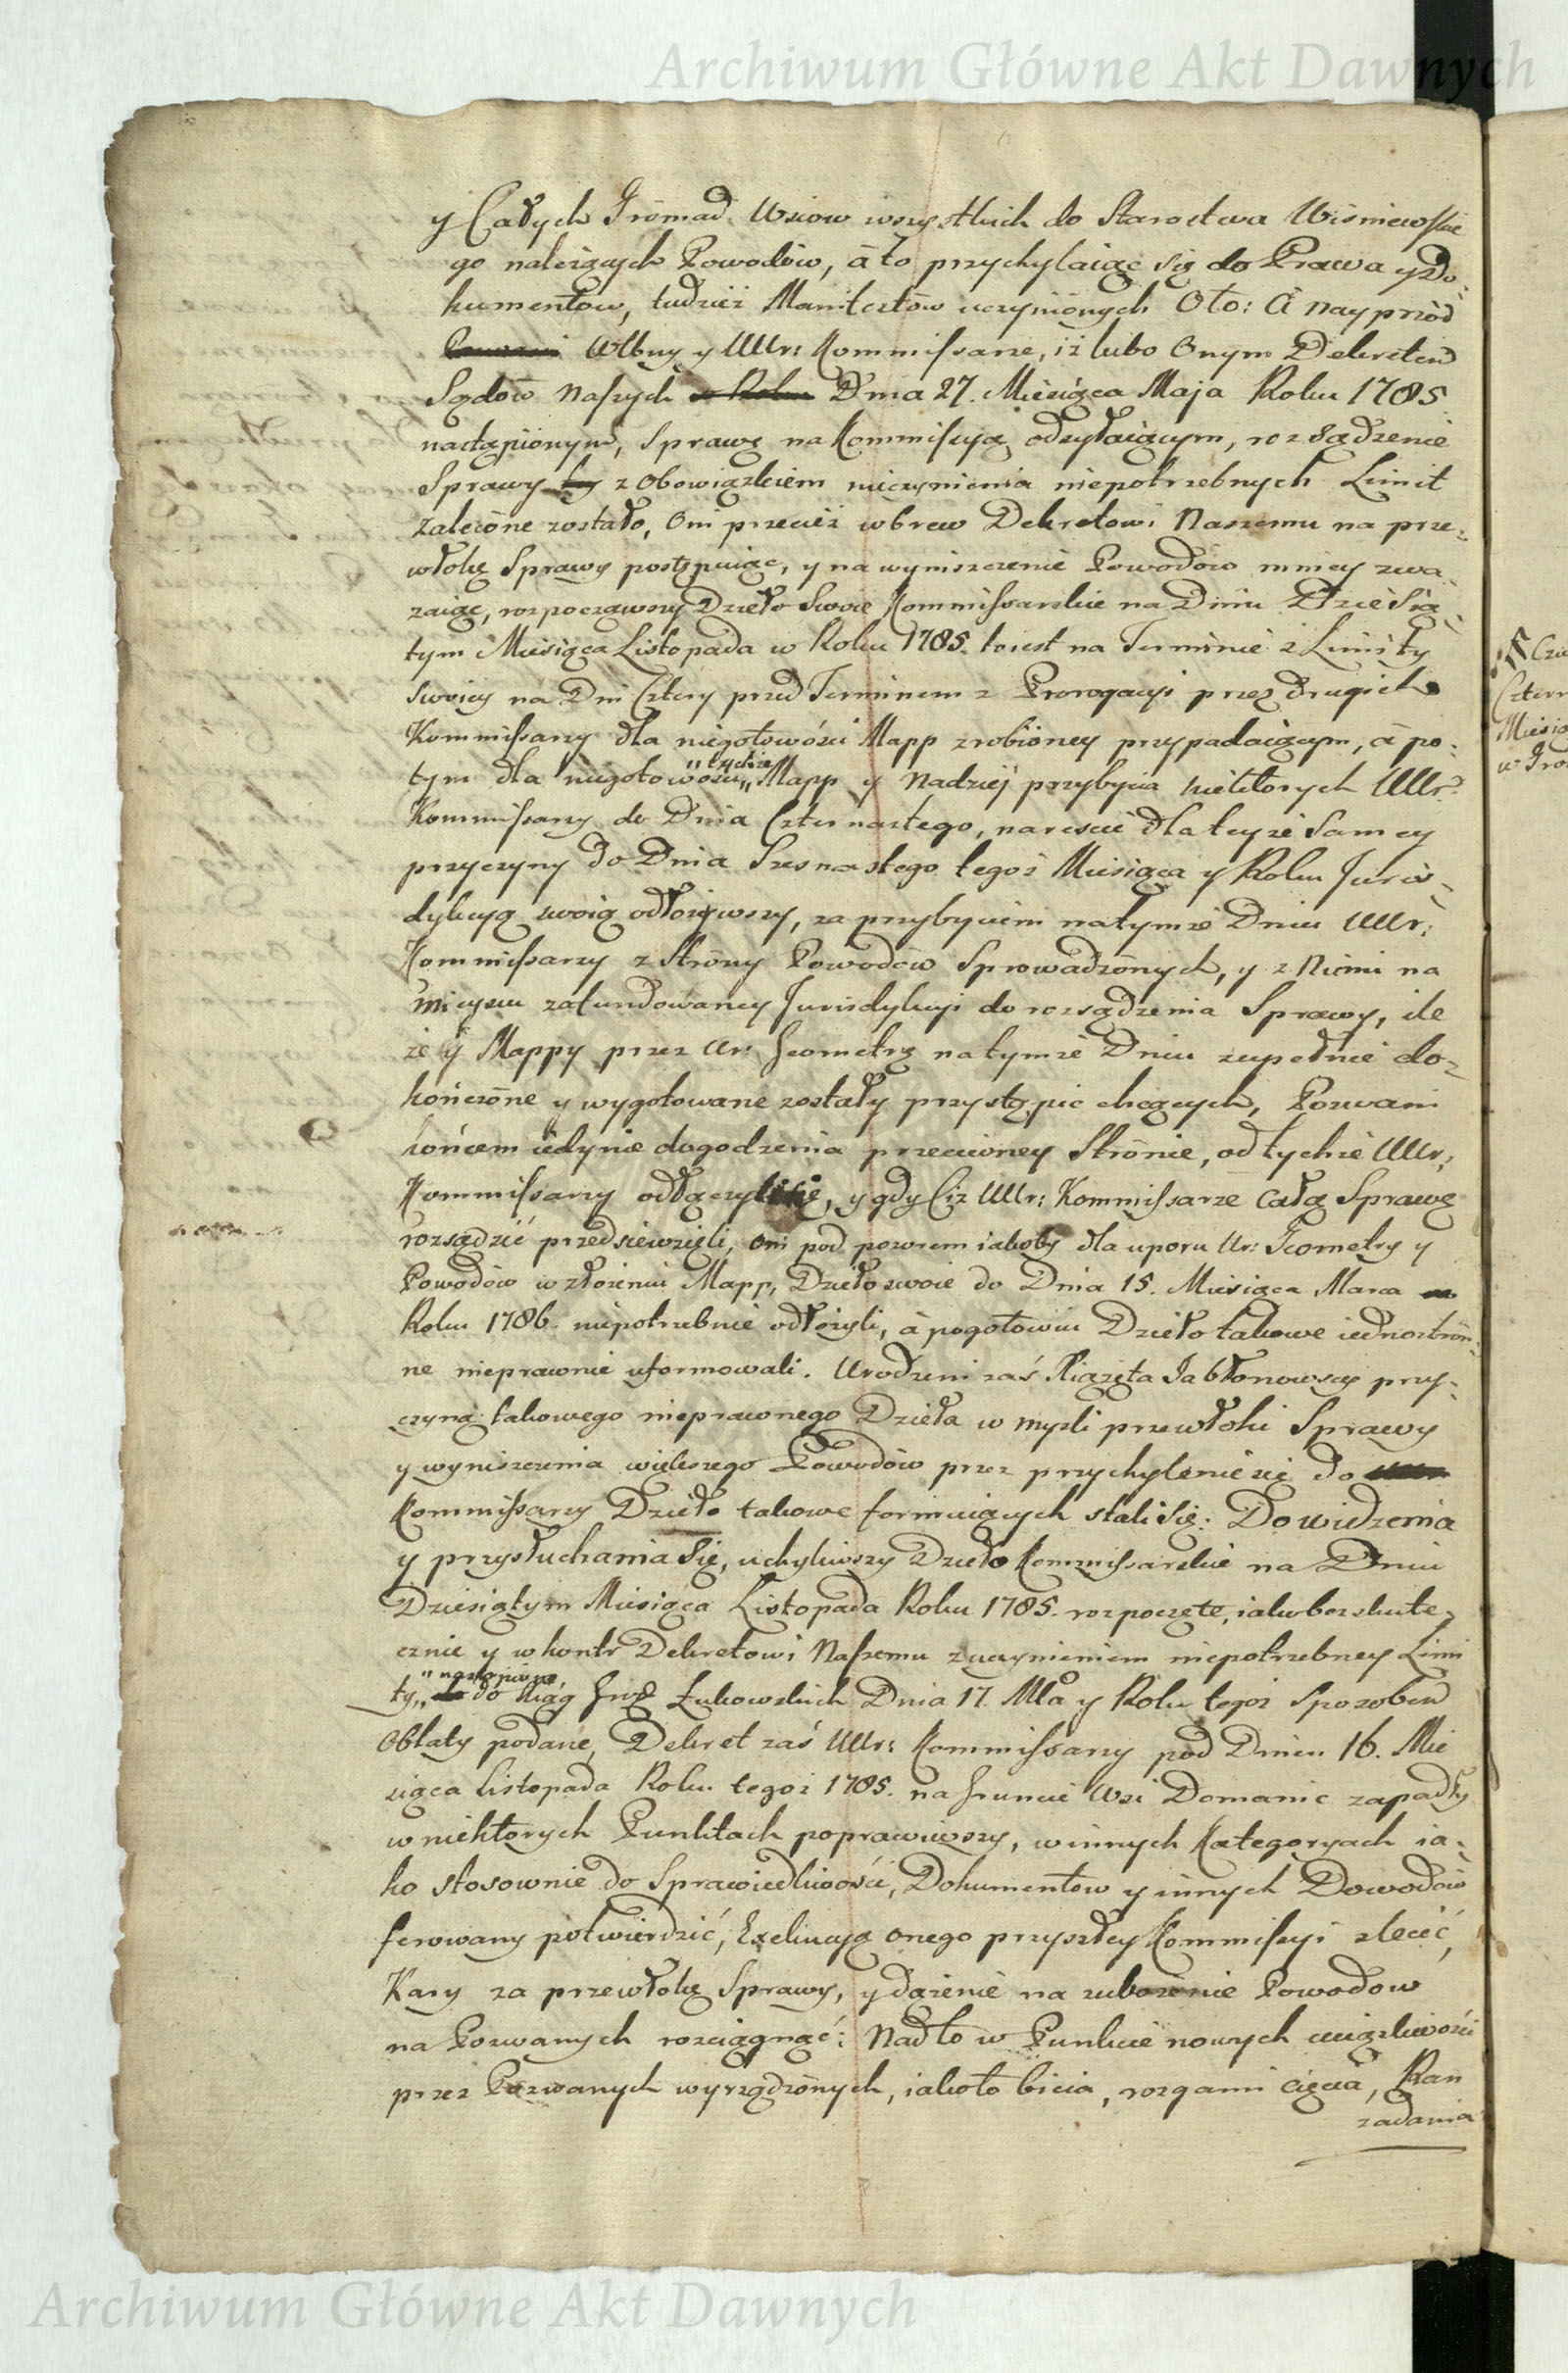 Archiwum Główne Akt Dawnych
y Całych Gromad Wsiow wszystkich do Starostwa Wiśniewskie
go należących Powodów, à to przychylaiąc się do Prawa y Do-
kumentow, tudzież Manifestów uczynionych Oto: à nayprzód
WWbny y UUr: Kommissarze, iż lubo Onym Dekretem
Sądow Naszych Dnia 27. Miesiąca Maja Roku 1785
nastąpionym, Sprawę na Kommissyą odsyłaiącym, rozsądzenie
Sprawy z Obowiązkiem nieczynienia niepotrzebnych Limit
zalecone zostało, Oni przecież wbrew Dekretowi Naszemu na prze-
włokę Sprawy postępuiąc, y na wyniszczenie Powodów mniey zwa-
żaiąc, rozpocząwszy Dzieło Swoie Kommissarskie na Dniu Dziesią-
tym Miesiąca Listopada w Roku 1785. to iest na Terminie z Limity
Swoiey na Dni Cztery przed Terminem z Prorogacyi przez drugich
Kommissarzy dla niegotowości Mapp zrobioney przypadaiącym, à po-
tym dla niegotowości „tychże„ Mapp y Nadziej przybycia niektorych UUr:
Kommissarzy do Dnia Czternastego, nareszcie dla teyże Samey
przyczyny do Dnia Szesnastego tegoż Miesiąca y Roku Juris-
dykcyą swoią odłożywszy, za przybyciem na tymże Dniu UUr:
Kommissarzy z Strony Powodow Sprowadzonych, y z Niemi na
mieyscu zafundowaney Jurisdykcyi do rozsądzenia Sprawy, ile
że y Mappy przez Ur: Geometrę na tymże Dniu zupełnie do-
kończone y wygotowane zostały przystąpic chcących, Pozwani
końcem iedynie dogodzenia przeciwney Stronie, od tychże UUr:
Kommissarzy odłączyli się, y gdy Ciż UUr: Kommissarze całą Sprawę
rozsądzić przedsiewzięli, Oni pod pozorem iakoby dla uporu Ur: Geometry y
Powodów w złożeniu Mapp, Dzieło swoie do Dnia 15. Miesiąca Marca
Roku 1786. niepotrzebnie odłożyli, à pogotowiu Dzieło takowe iednostron-
ne nieprawnie uformowali. Urodzeni zaś Xiążęta Jabłonowscy przy-
czyną takowego nieprawnego Dzieła w myśli przewłoki Sprawy
y wyniszczenia większego Powodów przez przychylenie się do
Kommissarzy Dzieło takowe formuiących stali się: Do widzenia
y przysłuchania się, uchyliwszy Dzieło Kommissarskie na Dniu
Dziesiątym Miesiąca Listopada Roku 1785. rozpoczęte, iako bezskute-
cznie y w kontr Dekretowi Naszemu z uczynieniem niepotrzebney Limi
ty„ „nastąpione do Xiąg Grodz Łukowskich Dnia 17. Mca y Roku tegoż Sposobem
Oblaty podane, Dekret zaś UUr: Kommissarzy pod Dniem 16. Mie
siąca Listopada Roku tegoż 1785. na Gruncie Wsi Domanic zapadły
w niektorych Punktach poprawiwszy, w innych Kategoryach ia-
ko stosownie do Sprawiedliwości, Dokumentow y innych Dowodów
ferowany potwierdzić, Exekucyą onego przyszłey Kommissyi zlecić,
Kary za przewłokę Sprawy, y dążenie na zubożenie Powodow
na Pozwanych rozciągnąć: Nadto w Punkcie nowych uciążliwości
przez Pozwanych wyrządzonych, iakoto bicia, rozgami cięcia, Ran
zadania
Archiwum Główne Akt Dawnych